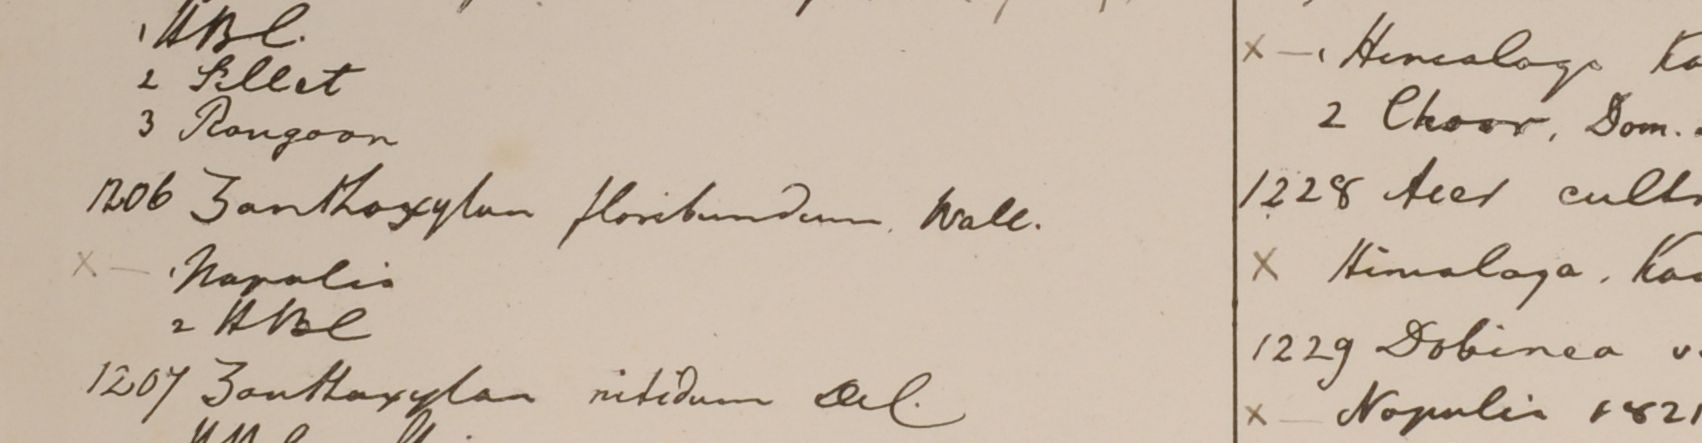 1 HBC.
2 Sillet
3 Rangoon
1206 Zanthoxylon floribundum. Wall.
x — 1 Napalia
2 HBC
1207 Zanthoxylon nitidum Del.
x — 1 Himalaya Ka
2 Choor, Dom.
1228 Acer cultr
x Himalaya. Ka
1229 Dobinea v
x — Napalia 1821